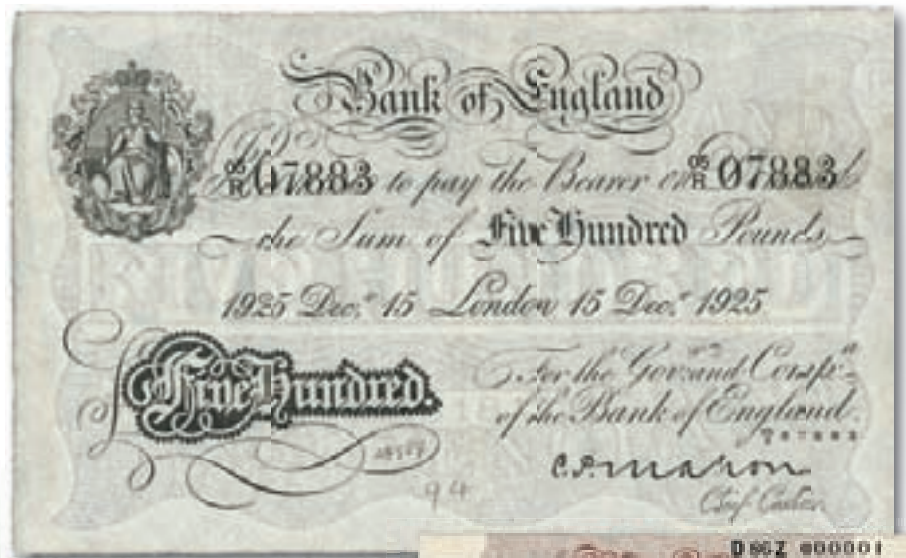 Bank of England
05/R 07883 to pay the Bearer on 05/R 07883
the Sum of Five Hundred Pounds
1925 Dec.r 15 London 15 Dec.r 1925
Five Hundred.
For the Gov.r and Comp.a
of the Bank of England.
C.P. Mahon
Chief Cashier
94
000001